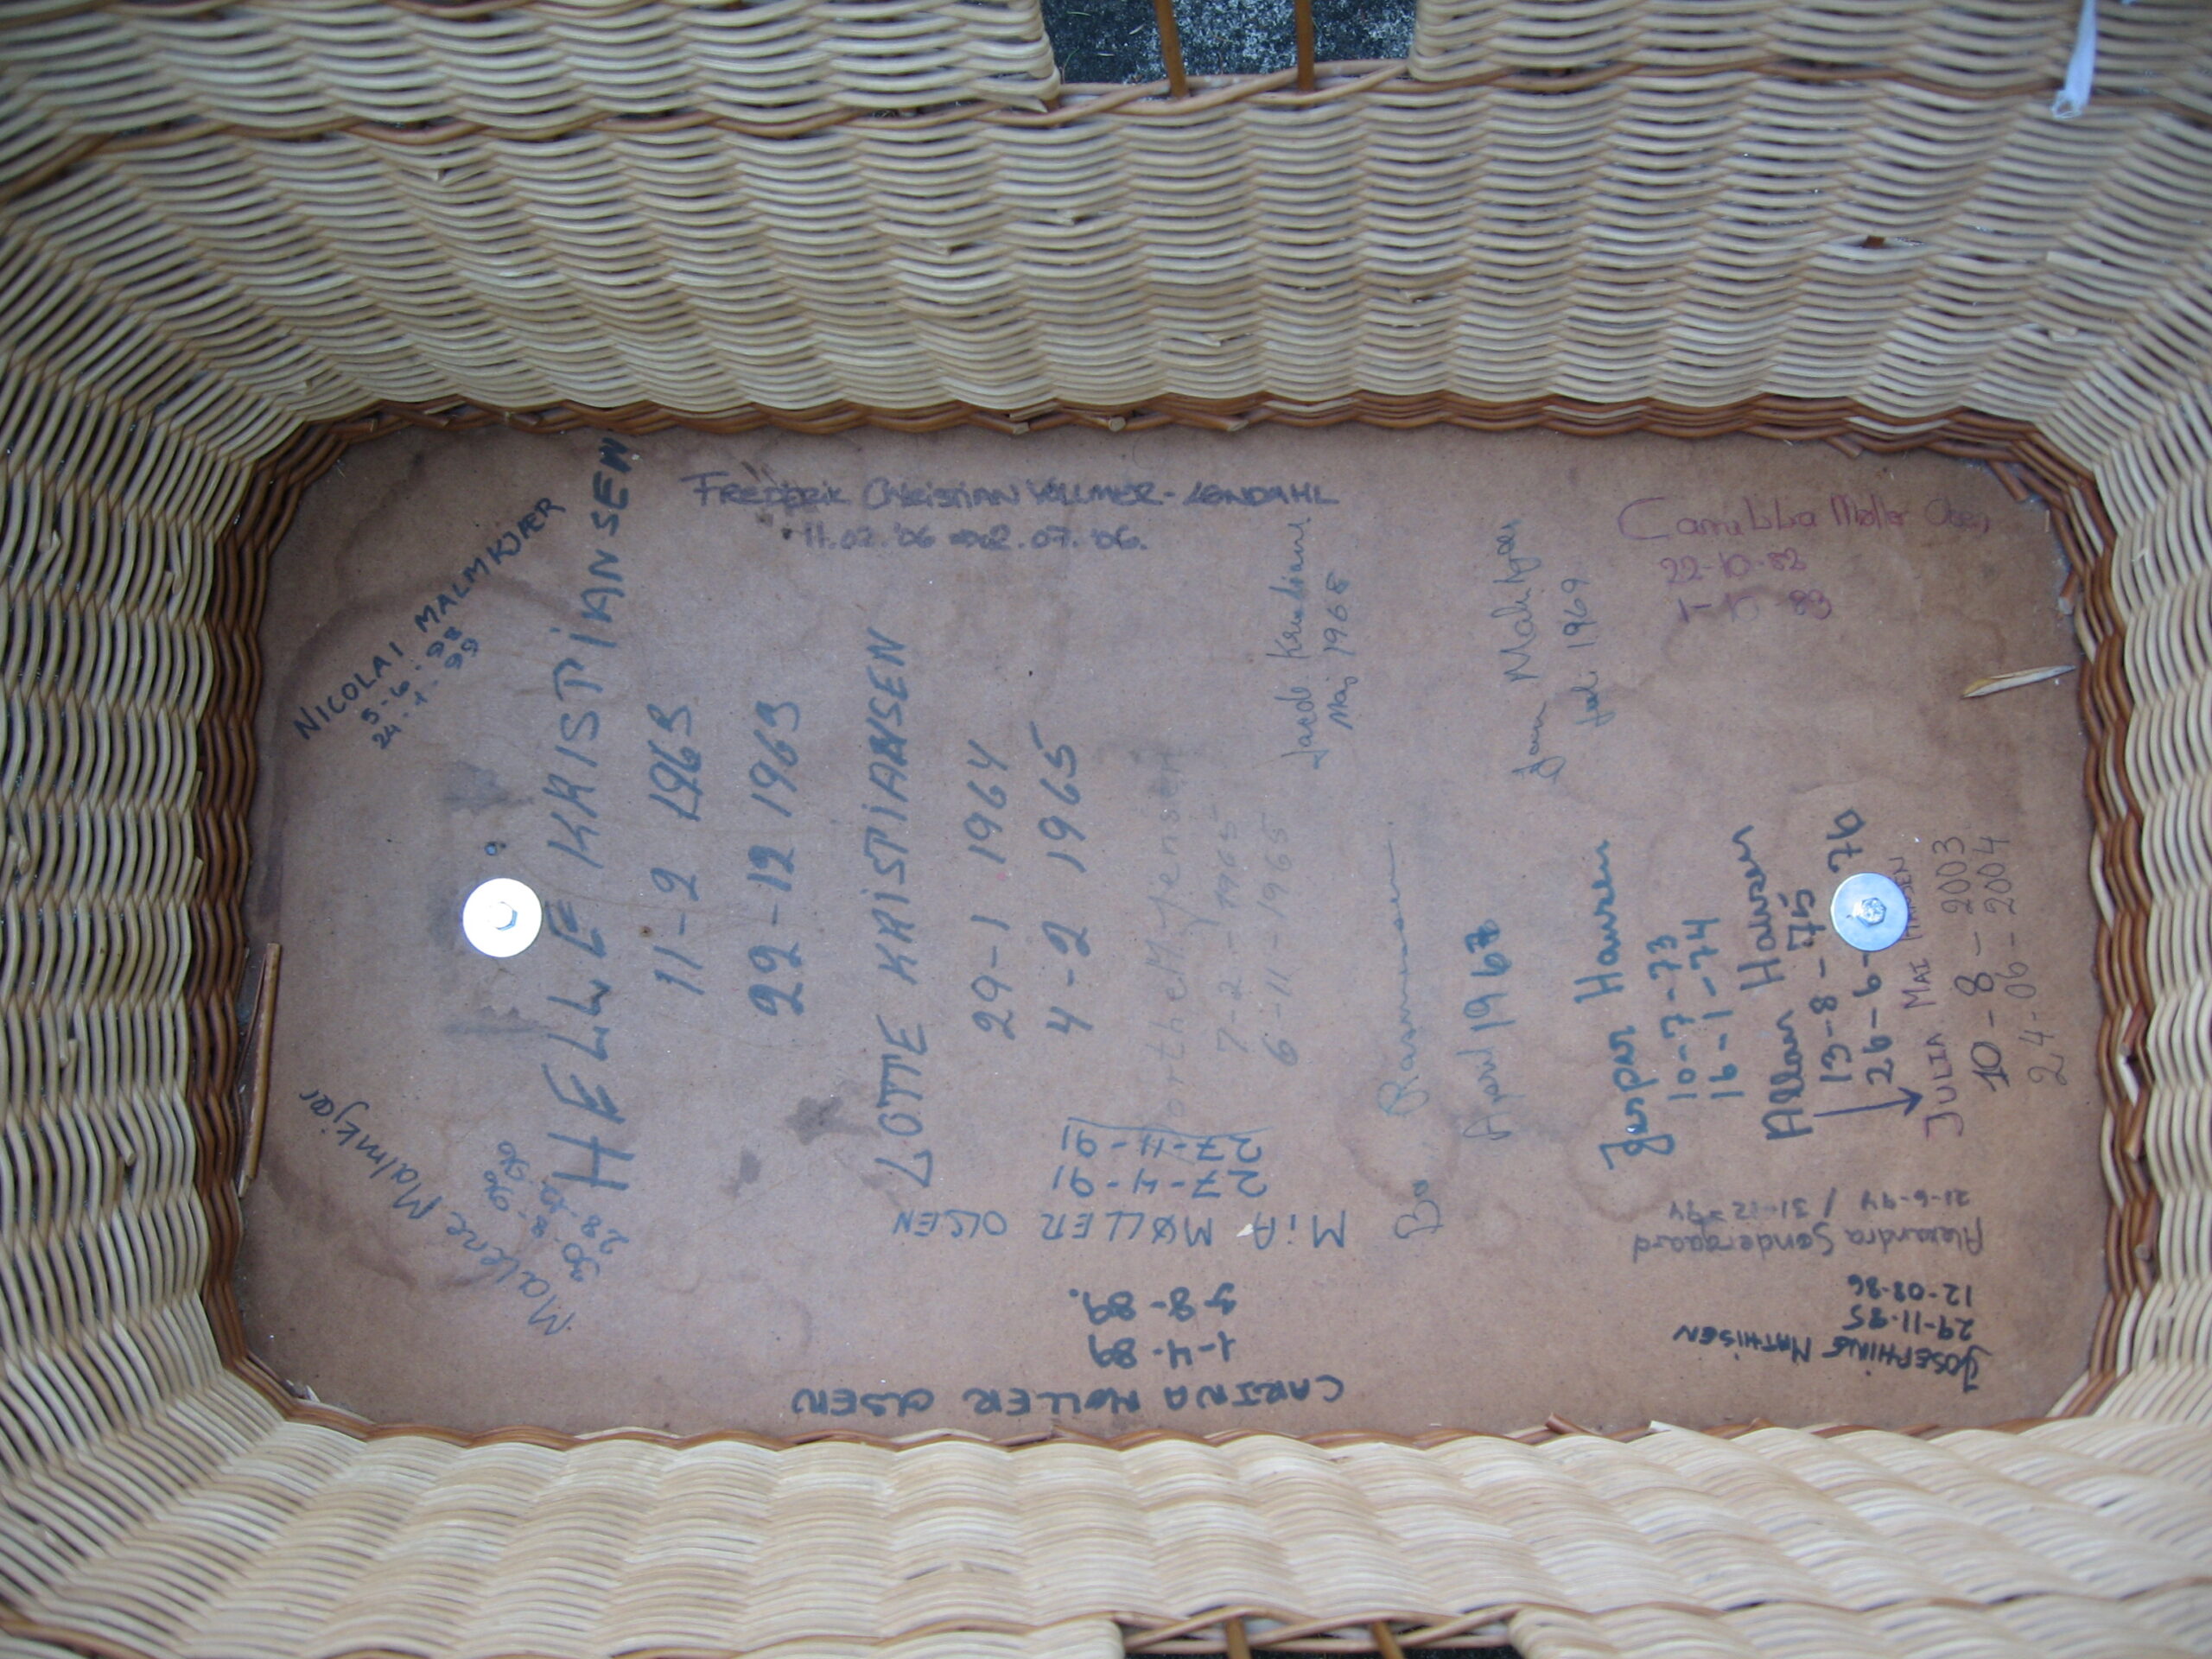 NICOLAI MALMKJÆR
5-6-98
24-1-99
HELLE KRISTIANSEN
11-2 1963
22-12 1963
LOTTE KRISTIANSEN
29-1 1964
4-2 1965
Dorthe M. Jensen
7-2-1965
6-11-1965
Jacob Kristiansen
Maj 1968
Bo Rasmussen
April 1967
Jan Malmkjær
1969
Jesper Hansen
10-7-73
16-1-74
Allan Hansen
13-8-75
26-6-76
JULIA MAI HANSEN
10-8-2003
24-06-2004
FREDERIK CHRISTIAN VOLLMER-LØNDAHL
11.02.'06 02.07.'06.
Camilla Møller Olsen
22-10-82
83
Malene Malmkjær
30-8-96
28-12-96
MiA MØLLER OLSEN
27-4-91
27-11-91
CARINA MØLLER OLSEN
1-4-89
5-8-89.
Alexandra Søndergaard
21-6-94 / 31-12-94
JOSEPHINE MATHISEN
29-11-85
12-08-86